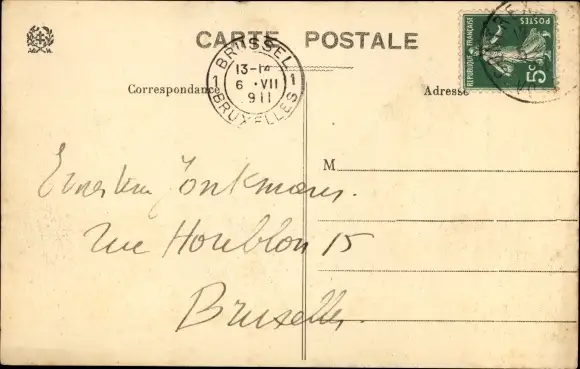 CARTE POSTALE
REPUBLIQUE FRANÇAISE
POSTES
5c
BRUSSEL
1 13-14 1
6 VII
911
BRUXELLES
Correspondance
Adresse
M
Rue Houblon 15
Bruxelles.